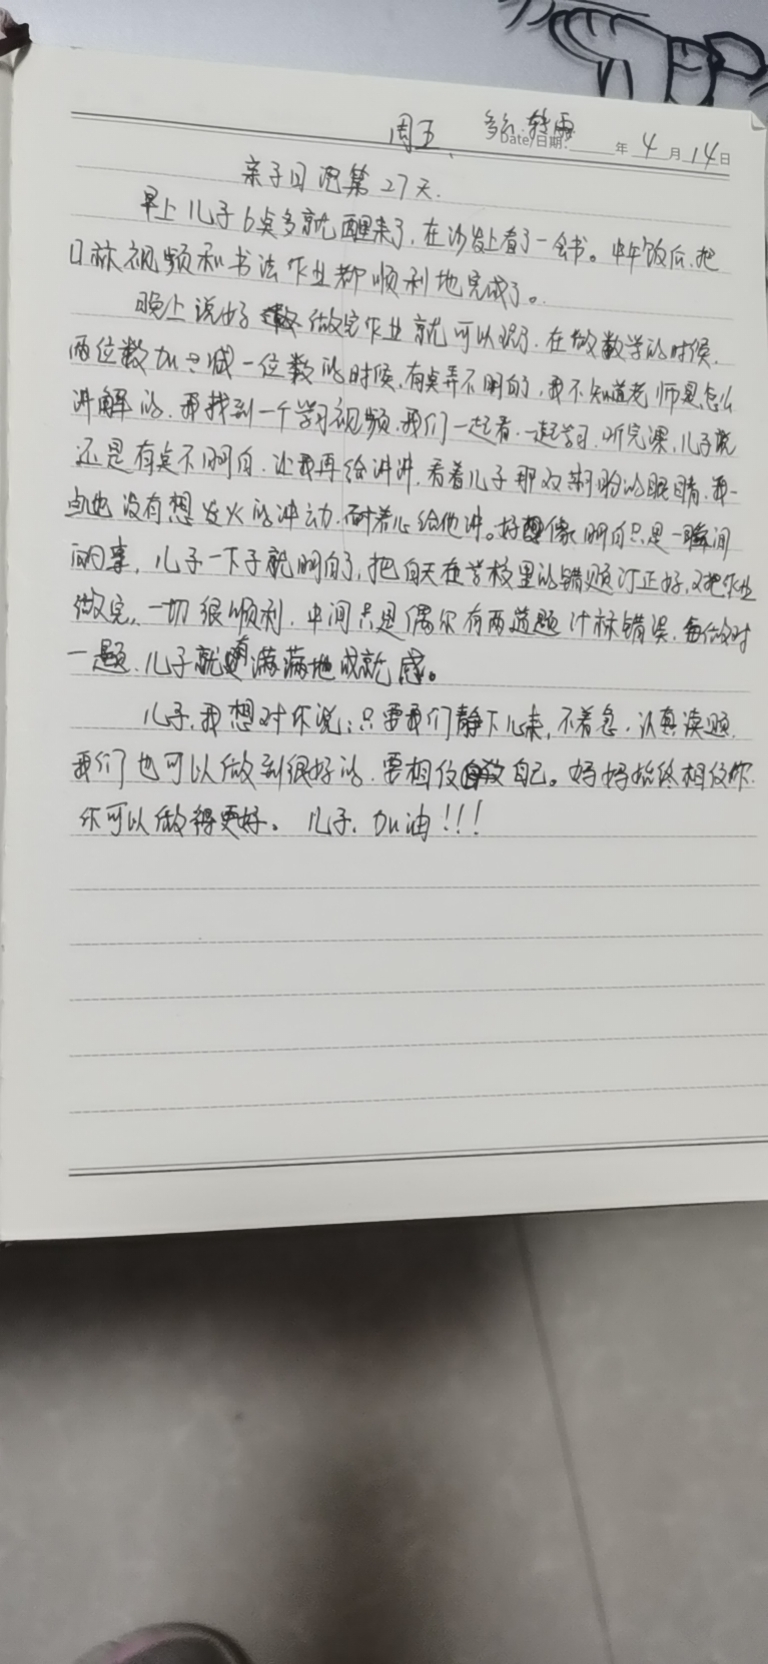 周五 多云转雨
Date/日期: 年 4 月 14 日
亲子日记第 27 天.
早上儿子6点多就醒来了,在沙发上看了一会书。中午饭后,把
口秫视频和书法作业都顺利地完成了。
晚上说好 做完作业就可以玩了.在做数学的时候,
两位数加减一位数的时候,有点弄不明白,我不知道老师是怎么
讲解的,我找到一个学习视频,我们一起看,一起学习,听完课,儿子说
还是有点不明白,让我再给讲讲,看着儿子那双期盼的眼睛,我一
点也没有想发火的冲动,耐着心给他讲。好像明白只是一瞬间
的事,儿子一下子就明白了,把白天在学校里的错题订正好,又把作业
做完,一切很顺利,中间只是偶尔有两道题计标错误,每做对
一题,儿子就满满地成就感。
儿子,我想对你说:只要我们静下心来,不着急,认真读题,
我们也可以做到很好的,要相信自己。妈妈始终相信你
你可以做得更好。儿子,加油!!!